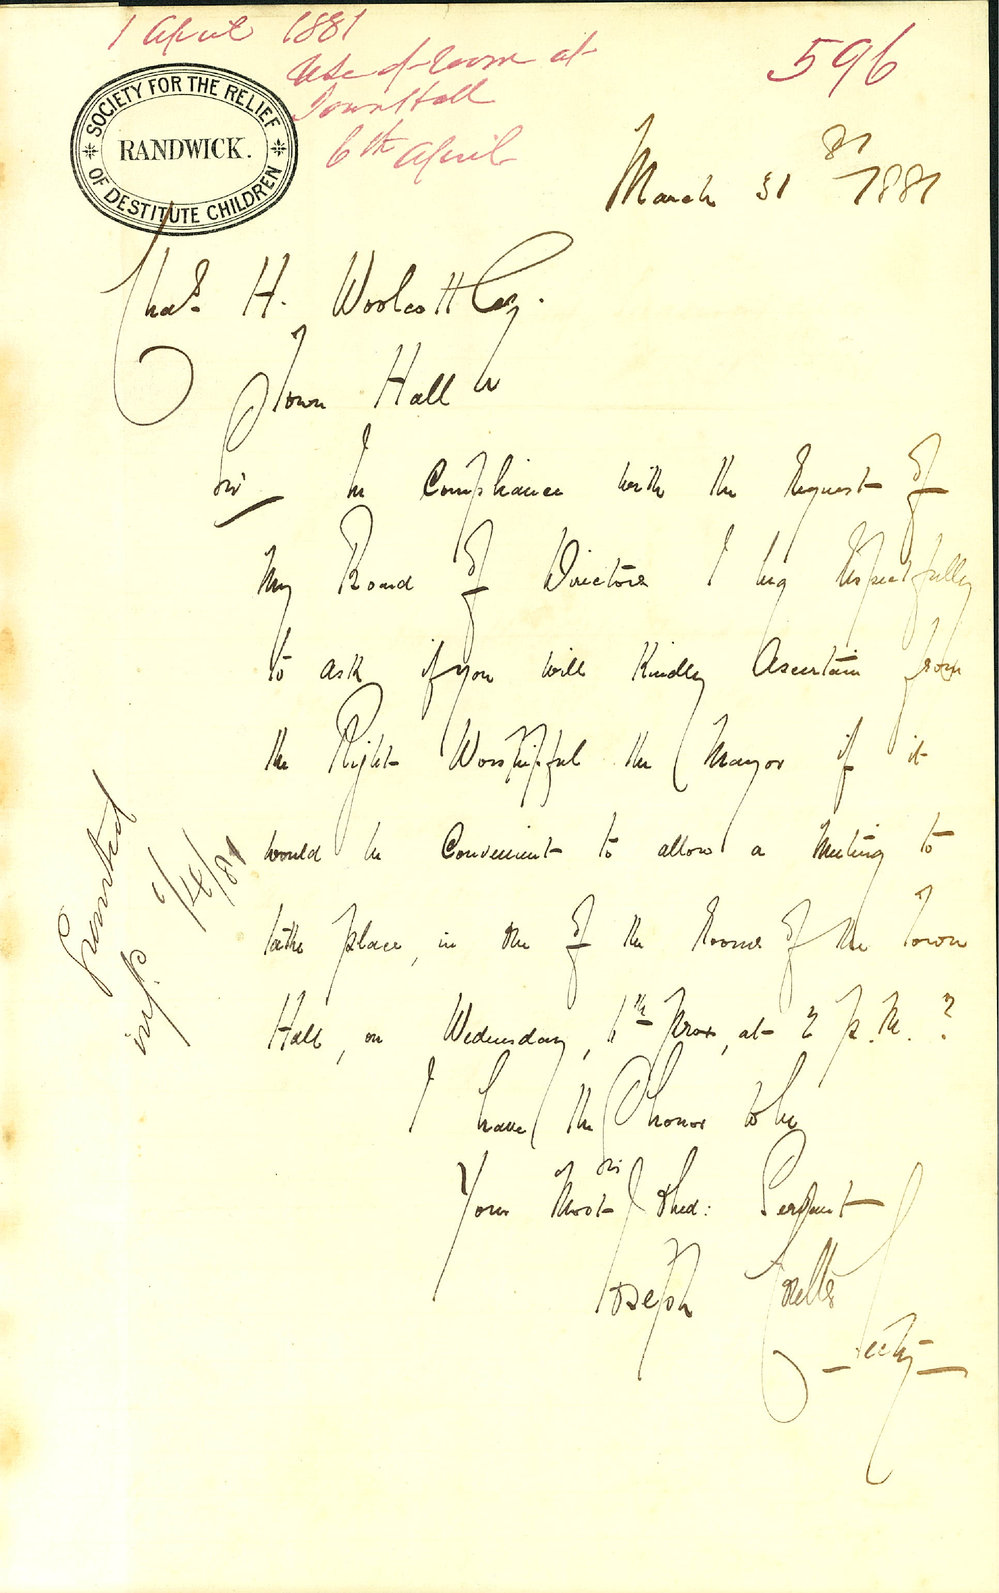 1 April 1881
Use of room at
Town Hall
6th April
596
SOCIETY FOR THE RELIEF
RANDWICK.
OF DESTITUTE CHILDREN
March 31 1881
Chas. H. Woolcott Esq.
Town Hall
Sir In Compliance with the Request of
my Board of Directors I beg Respectfully
to ask if you will Kindly Ascertain from
the Right Worshipful the Mayor if it
would be Convenient to allow a Meeting to
take place, in one of the Rooms of the Town
Hall, on Wednesday, 6th Prox, at 2 P.M.?
I have the honor to be
Sir
Your Most Obed: Servant
Joseph
Secty
Granted
1/4/81